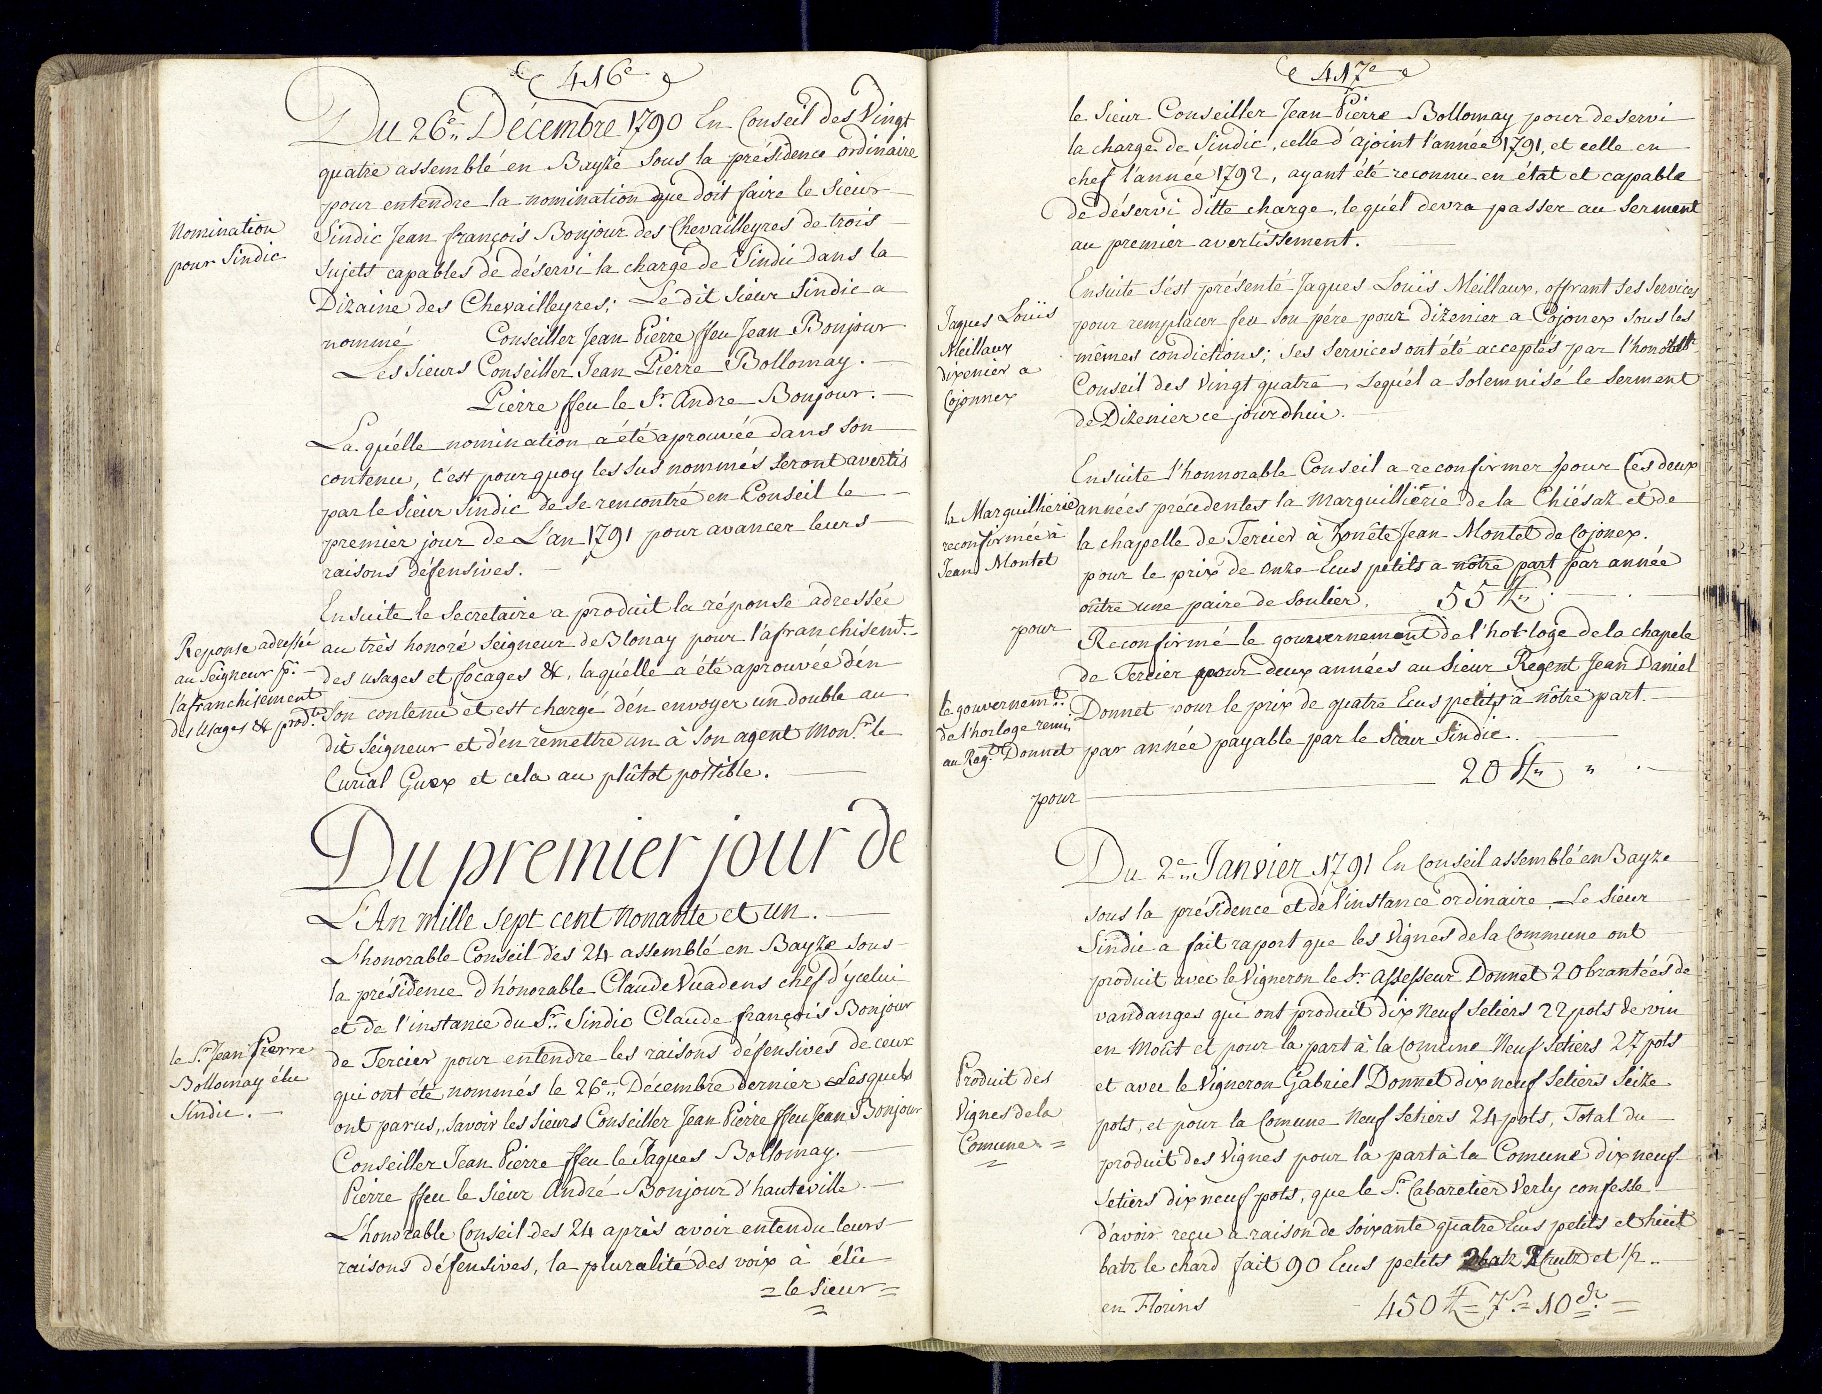 416e
Du 26e Décembre 1790 En Conseil des Vingt
quatre assemblé en Bayze sous la présidence ordinaire
pour entendre la nomination que doit faire le Sieur
Nomination
pour Sindic
Sindic Jean françois Bonjour des Chevailleyres de trois
Sujets capables de déservi la charge de Sindic dans la
Dizaine des Chevailleyres; Le dit Sieur Sindic a
nommé Conseiller Jean Pierre ffeu Jean Bonjour
Les Sieurs Conseiller Jean Pierre Bollomay.
Pierre ffeu le Sr. Andre Bonjour.
La quélle nomination a été aprouvée dans son
contenu, C'est pourquoy les sus nommés seront avertis
par le Sieur Sindic de se rencontré en Conseil le
premier jour de L'an 1791 pour avancer leurs
raisons défensives.
Reponse adressée
au Seigneur pr.
l'afranchisement
des usages &c prodte.
Ensuite le Secretaire a produit la réponse adressée
au très honoré Seigneur de Blonay pour l'afranchisemt.
des usages et focages &c, laquélle a été aprouvée dén
son contenu et est chargé dén envoyer un double au
dit Seigneur et d'en remettre un à son agent Monsr. le
Curial Guex et cela au plûtot possible.
Du premier jour de
L'An mille sept cent nonante et un.
L'honorable Conseil des 24 assemblé en Bayze sous
la présidence d'hónorable Claude Vuadens chef d'ycelui
et de l'instance du Sr. Sindic Claude françois Bonjour
le Sr. Jean Pierre
Bollomay élu
Sindic.
de Tercier pour entendre les raisons défensives de ceux
qui ont été nommés le 26e. Décembre dernier Lesquels
ont parus, Savoir les Sieurs Conseiller Jean Pierre ffeu Jean Bonjour
Conseiller Jean Pierre ffeu le Jaques Bollomay.
Pierre ffeu le Sieur André Bonjour d'hauteville
L'honorable Conseil des 24 après avoir entendu leurs
raisons défensives, la pluralité des voix à élû
= le Sieur =
417e
le Sieur Conseiller Jean Pierre Bollomay pour deservi
la charge de Sindic, celle d'ajoint l'année 1791, et celle en
chef l'année 1792, ayant été reconnu en état et capable
de déservi ditte charge, lequél devra passer au Serment
au premier avertissement.
Jaques Louïs
Meillaux
dixenier a
Cojonnex
Ensuite s'ést présenté Jaques Louïs Meillaux, offrant ses services
pour remplacer feu son pére pour dizenier a Cojonex sous les
mêmes condictions; ses services ont été acceptés par l'honorable
Conseil des Vingt quatre, Lequél a solemnisé le Serment
de Dizenier ce jourdhui.
la Marguillierie
reconfirmée à
Jean Montet
Ensuite l'honnorable Conseil a reconfirmer pour les deux
années précedentes la Marguillierie de la Chiésaz et de
la chapelle de Tercier à Honête Jean Montet de Cojonex.
pour le prix de onze Ecus petits a nôtre part par année
oûtre une paire de Soulier. 55 ffl.
pour
le gouvernemt.
de l'horloge remi
au Regt. Donnet
Reconfirmé le gouvernement de l'horloge de la chapele
de Tercier pour deux années au Sieur Régent Jean Daniel
Donnet pour le prix de quatre Ecus petits à nôtre part
par année payable par le Sieur Sindic.
pour 20 ffl " .
Du 2e. Janvier 1791 En Conseil assemblé en Bayze
sous la présidence et de l'instance ordinaire. Le Sieur
Sindic a fait raport que les Vignes de la Commune ont
produit avec le Vigneron le Sr. Assesseur Donnet 20 brantées de
vandanges qui ont produit dix neuf Setiers 22 pots de vin
en Moût et pour la part à la Comune Neuf Setiers 27 pots
Produit des
Vignes de la
Comune. =
et avec le Vigneron Gabriel Donnet dix neuf Setiers Seize
pots, et pour la Comune Neuf Setiers 24 pots, Total du
produit des Vignes pour la part à la Comune dix neuf
Setiers dix neuf pots, que le Sr. Cabaretier Verly confesse
d'avoir reçu a raison de Soixante quatre Ecus petits et huit
batz le chard fait 90 Ecus petits 2 batz 2 Crutz et 1/2
en Florins 450 ff = 7 s. = 10 dr. =